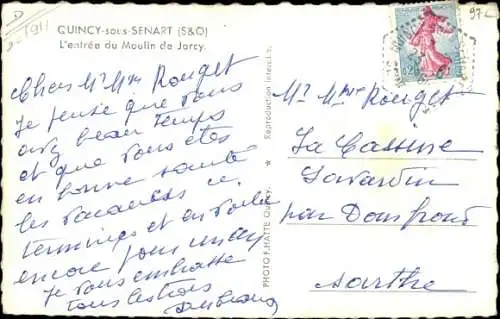 QUINCY-sous-SENART (S&O)
L'entrée du Moulin de Jarcy.
Chers Mr Mme Rouget
Je pense que vous
avez beau temps
et que vous etes
en bonne santé
les vacances
terminées et en voila
encore pour un an
Je vous embrasse
tous les trois
Reproduction interdite.
PHOTO F. HATTE QUINCY.
0,20
Mr Mme Rouget
La Cassine
Lavardin
par Domfront
Sarthe